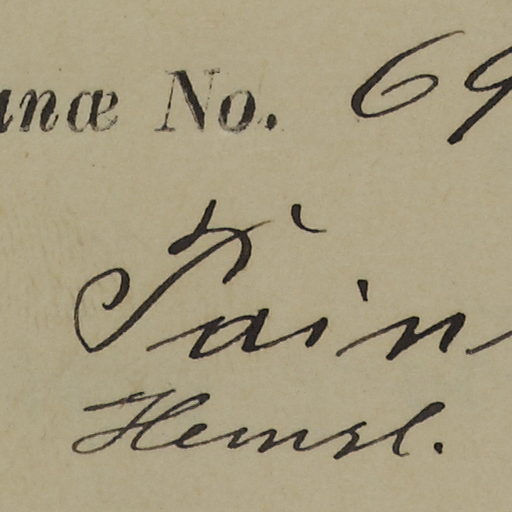 anæ No. 69
Tain
Hemsl.